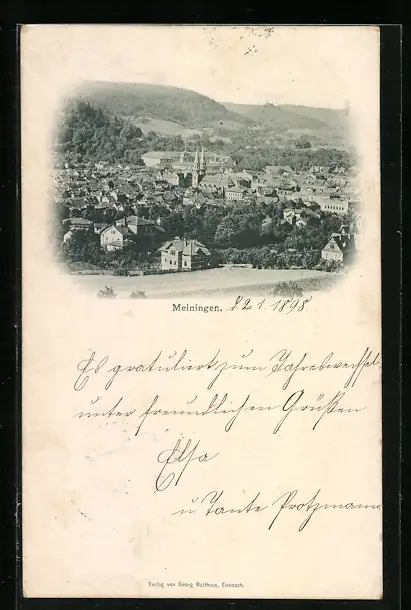 Meiningen. d. 2. 1. 1898.
Es gratuliert zum Jahreswechsel
unter freundlichen Grüßen
Elsa
u. Tante Protzmann
Verlag von Georg Eisenach.